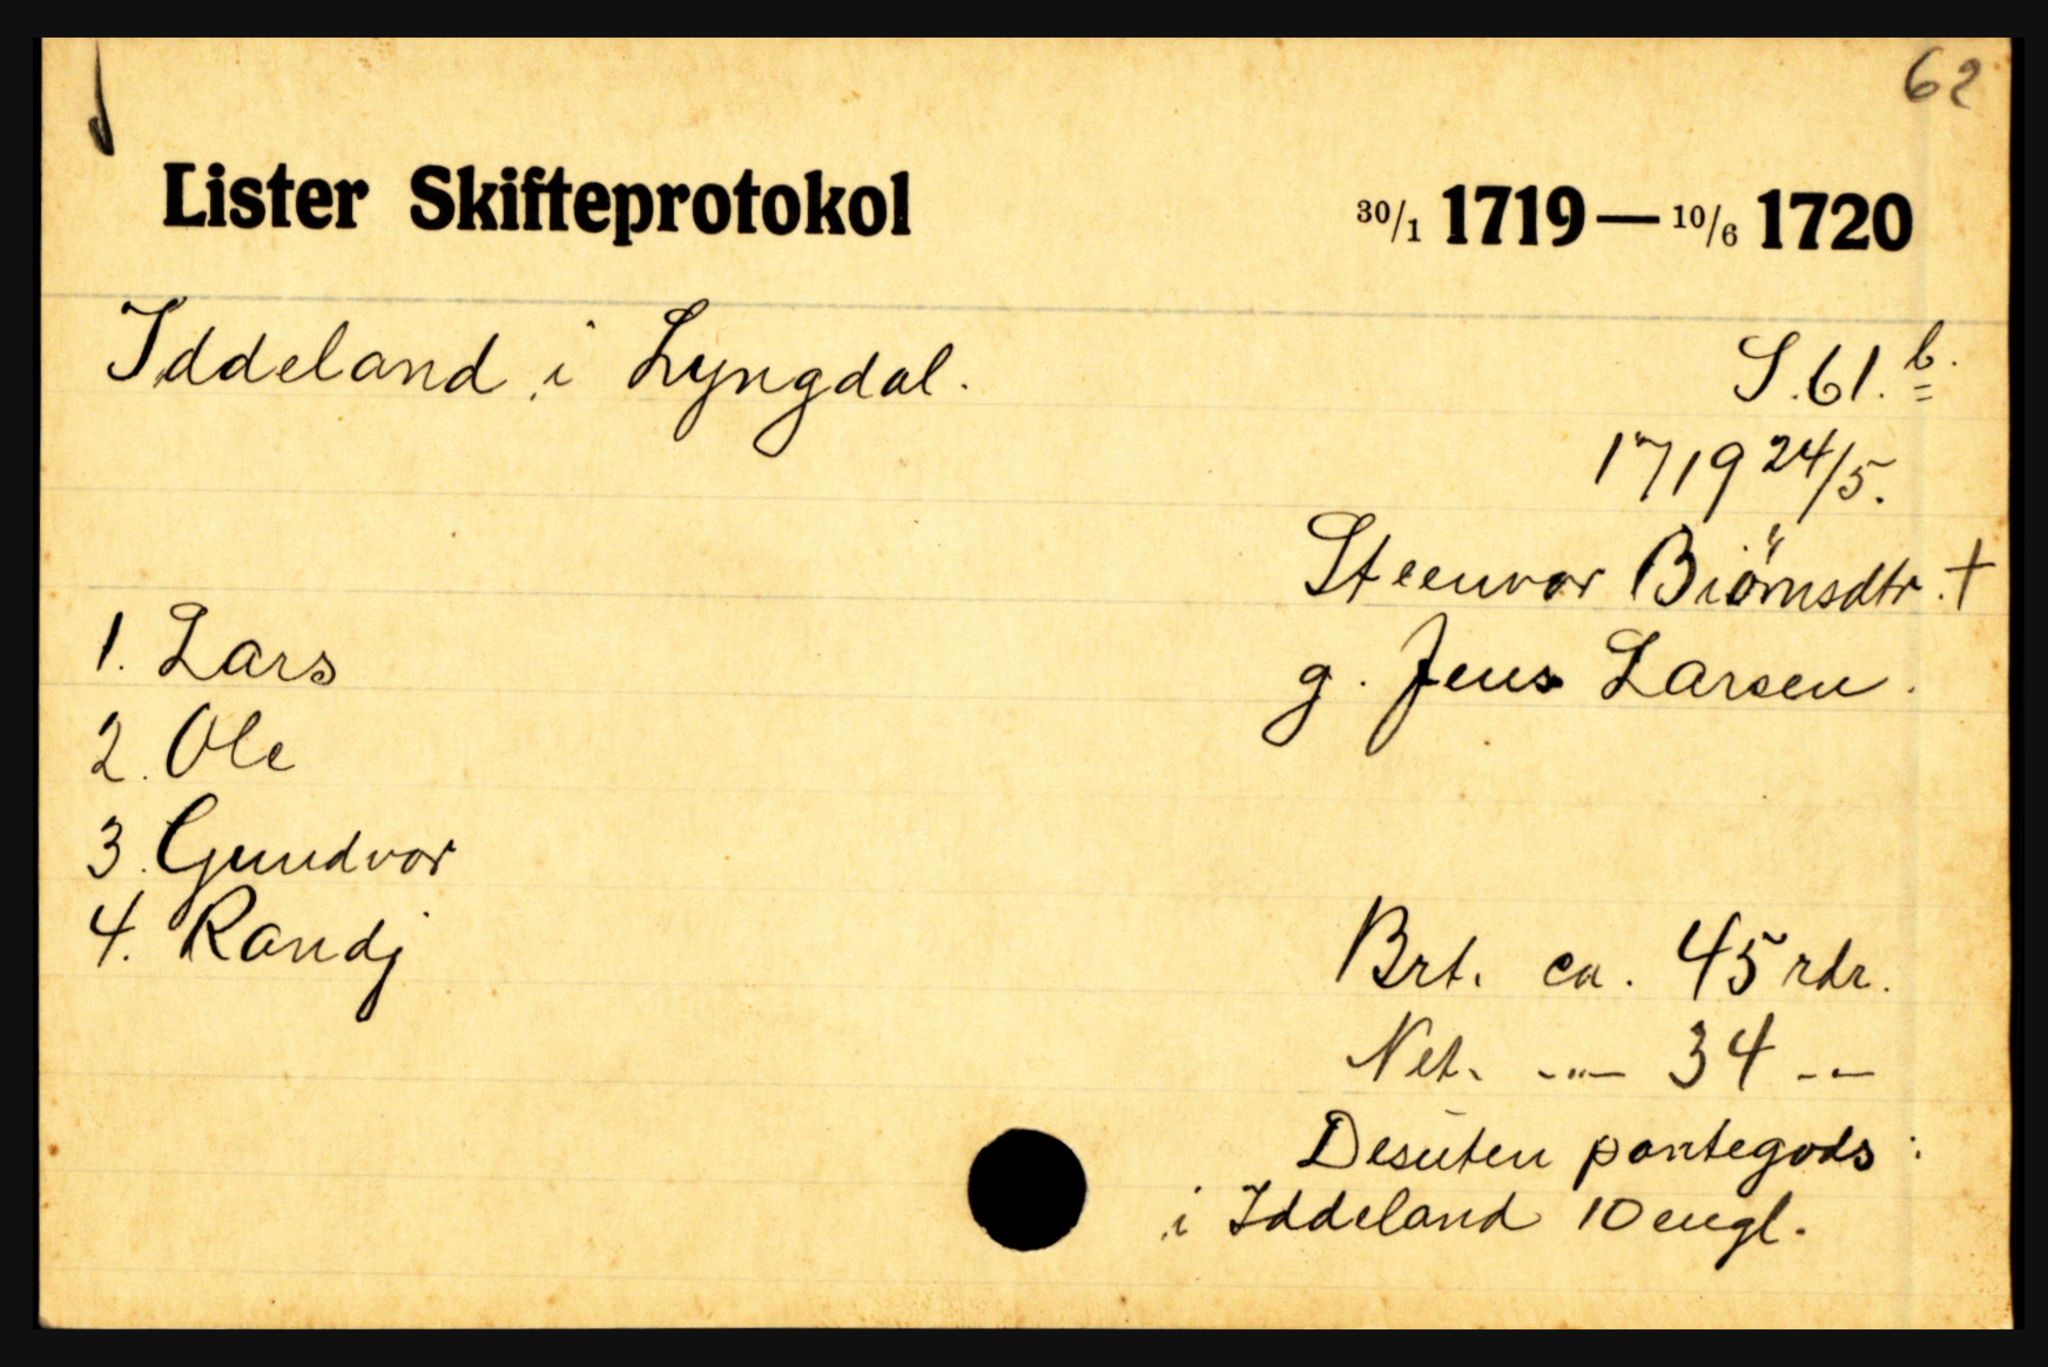 62
Lister Skifteprotokol 30/1 1719 — 10/6 1720
Iddeland i Lyngdal.
S. 61. b.
1719 24/5.
Steenvor Biörnsdtr. +
g. Jens Larsen.
1. Lars
2. Ole
3. Gundvor
4. Randj
Brt. ca. 45 rdr.
Net. -"- 34 --
Desuten pantegods:
i Iddeland 10 engl.